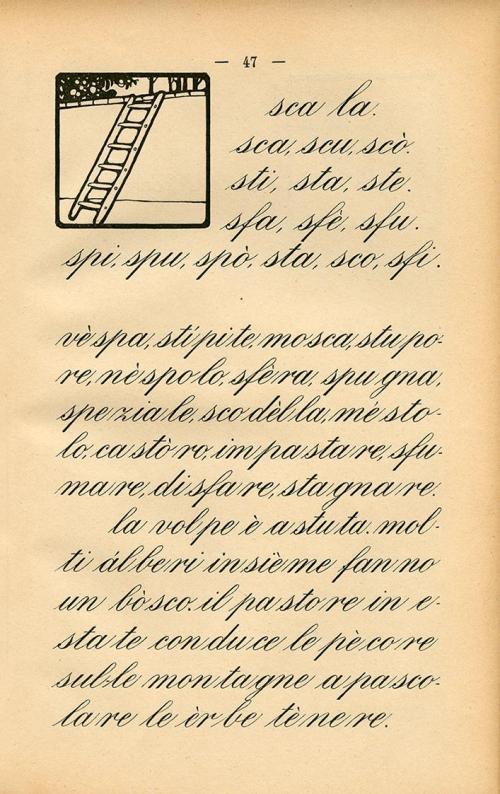 — 47 —
sca la.
sca, scu, scò.
sti, sta, ste.
sfa, sfè, sfu.
spi, spu, spò, sta, sco, sfi.
vè spa, stí pi te, mo sca, stu po-
re, nè spo lo, sfè ra, spu gna,
spe zia le, sco dèl la, mé sto-
lo, ca stò ro, im pa sta re, sfu-
ma re, di sfa re, sta gna re.
la vol pe è a stu ta. mol-
ti ál be ri in siè me fan no
un bò sco. il pa sto re in e-
sta te con du ce le pè co re
sul-le mon ta gne a pa sco-
la re le èr be tè ne re.